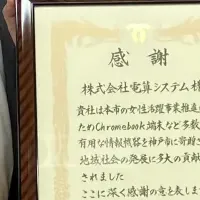 感謝
株式会社電算システム様
貴社は本市の女性活躍事業推進の
ためChromebook端末など多数
有用な情報機器を神戸市に寄贈さ
地域社会の発展に多大の貢献
されました
ここに深く感謝の意を表します